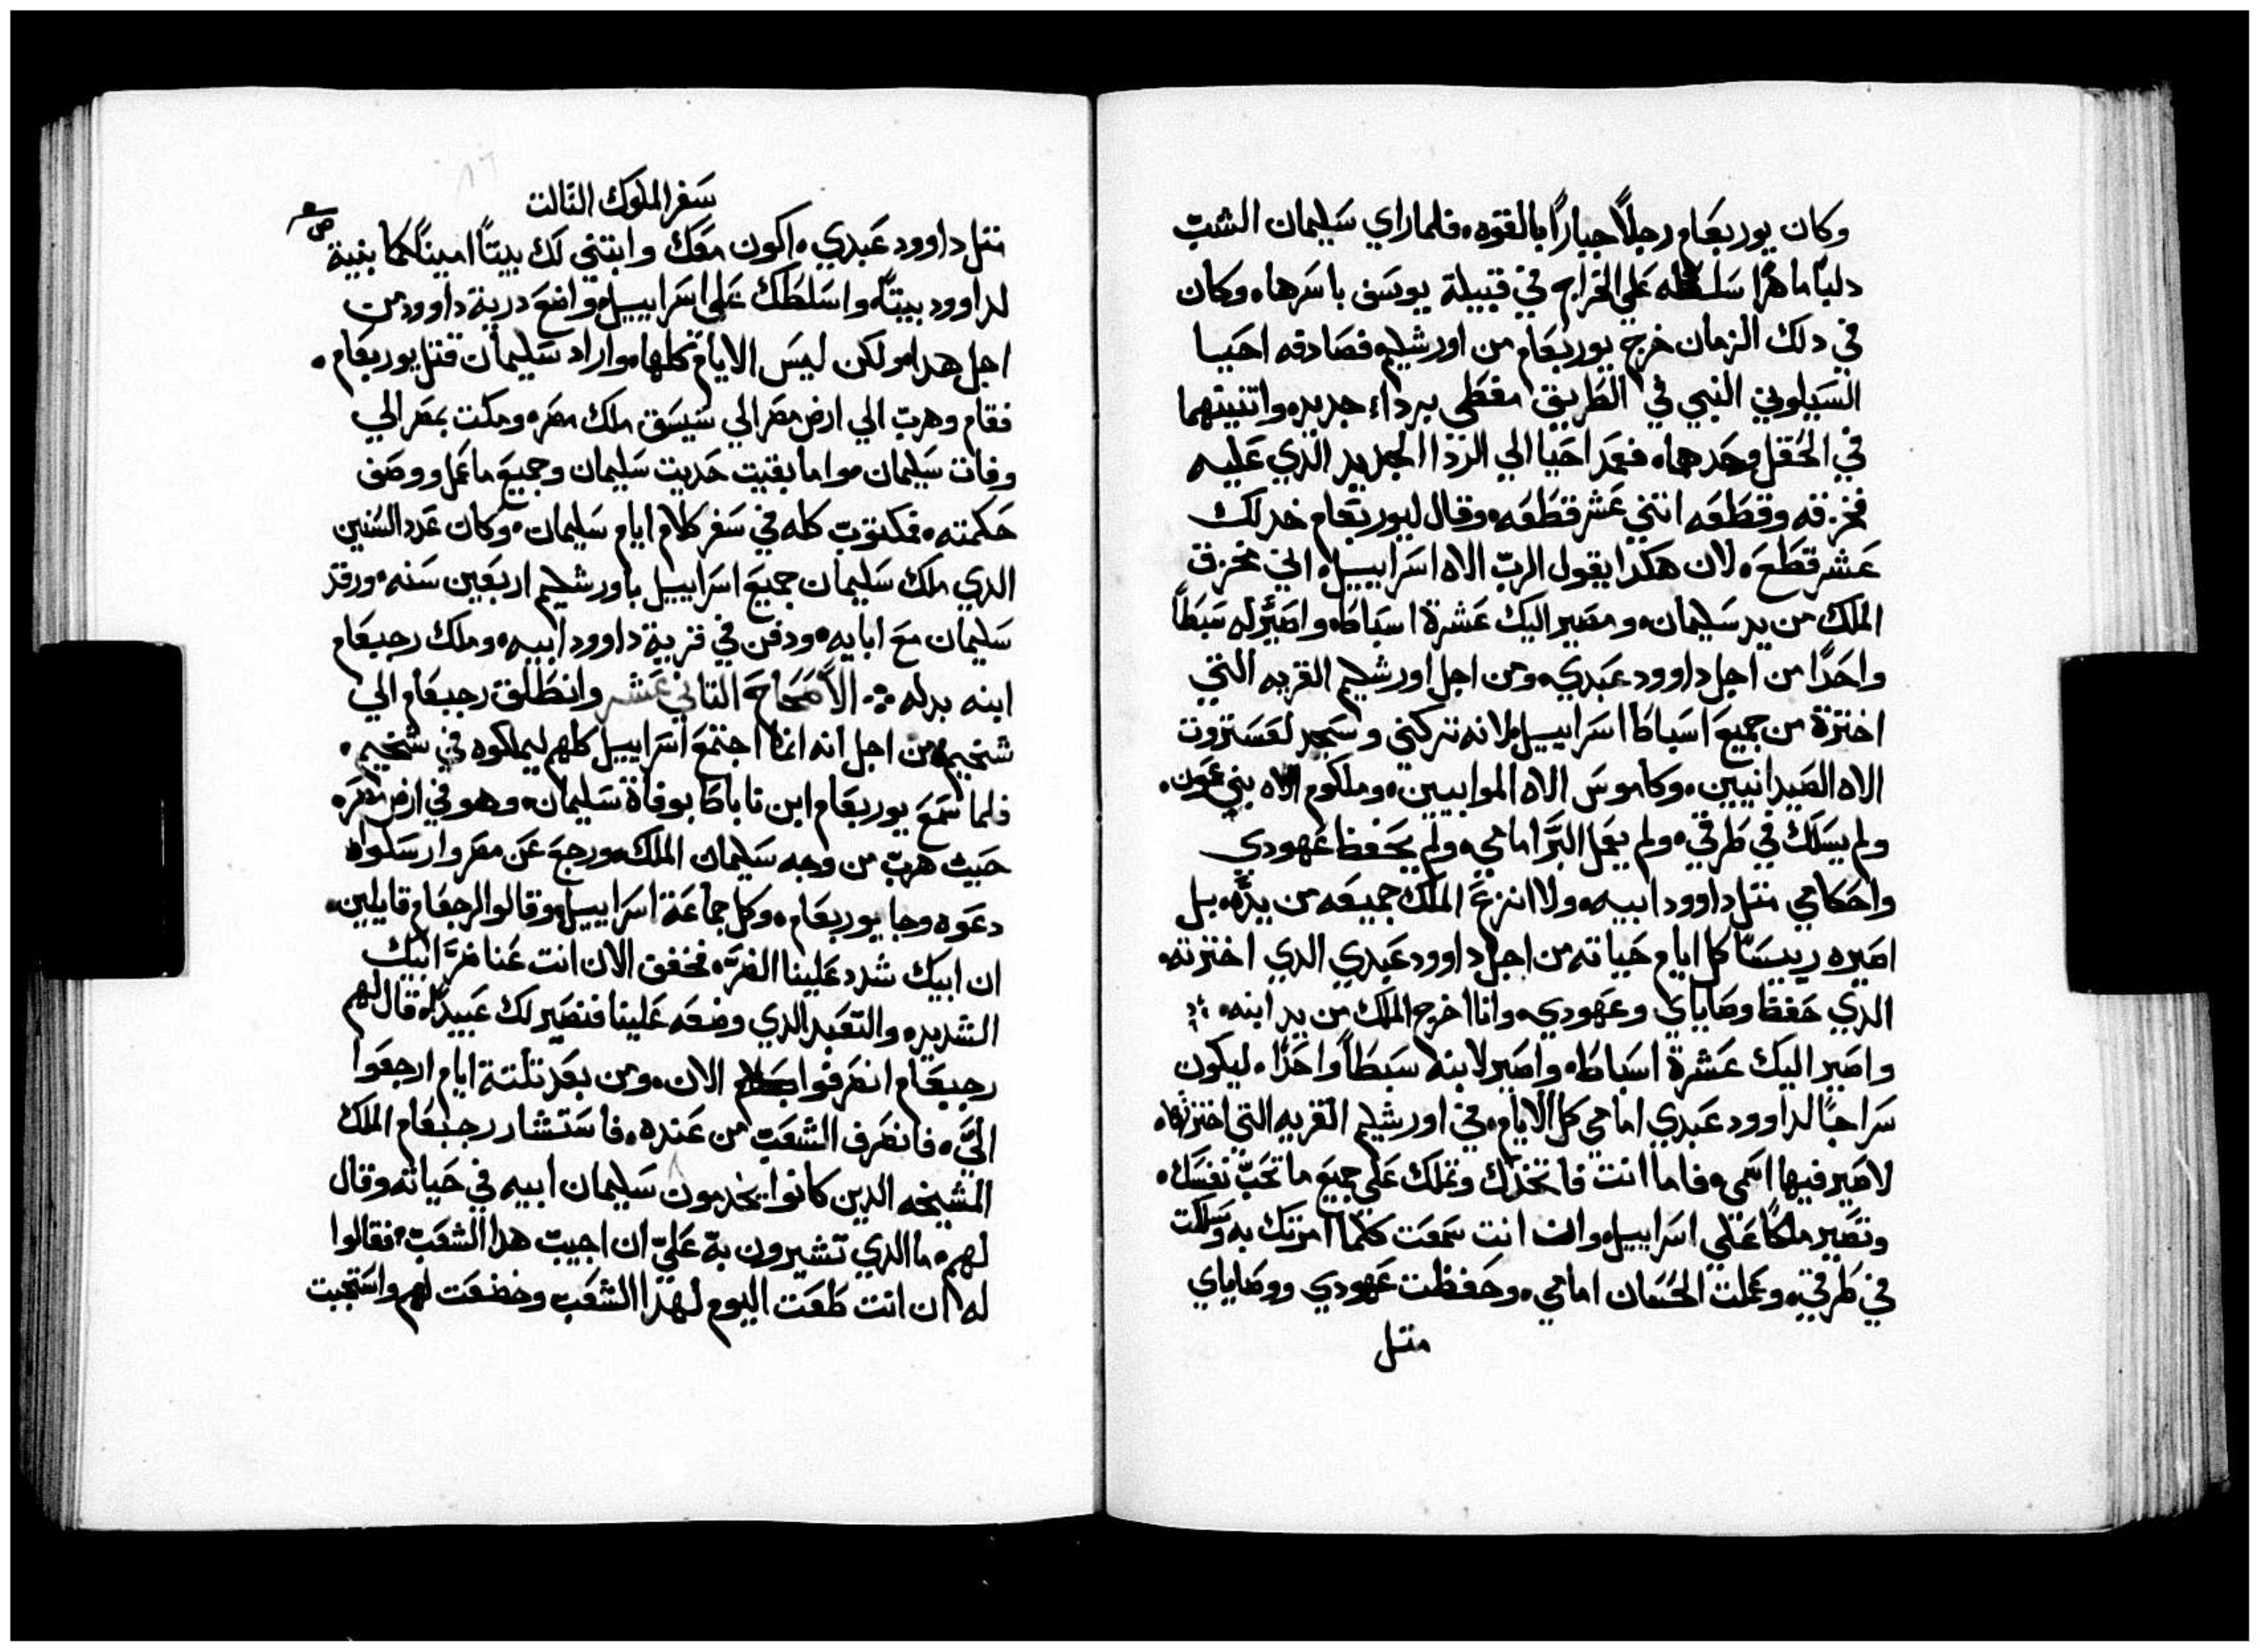 وكان يوربعام رجلاً جباراً بالقوه، فلما راي سليمان الشب
دلباً ماهراً سلطه علي الخراج في قبيلة يوسف باسرها، وكان
في دلك الزمان خرج يوربعام من اورشليم فصادقه احيا
السيلوني النبي في الطريق مغطي برداء جديد، واتنينهما
في الحقل وحدهما، فعمد احيا الي الردا الجديد الذي عليه
فخرقه وقطعه اتنتي عشر قطعه، وقال ليوربعام خد لك
عشر قطع، لان هكدا يقول الرب الاه اسراييل، اني مخرق
الملك من يد سليمان، ومصير اليك عشرة اسباط، واصير له سبطاً
واحداً من اجل داوود عبدي، ومن اجل اورشليم القريه التي
اخترتة من جميع اسباط اسراييل، لانه تركني وسجد لعستروت
الاه الصيدانيين، وكاموس الاه الموابيين، وملكوم الاه بني عمون،
ولم يسلك في طرقي، ولم يعمل البر امامي، ولم يحفظ عهودي
واحكامي متل داوود ابيه، ولا انزع الملك جميعه من يده، بل
اصيره رييساً كل ايام حياته من اجل داوود عبدي الدي اخترته،
الدي حفظ وصاياي وعهودي، وانا اخرج الملك من يد ابنه،
واصير اليك عشرة اسباط، واصير لابنه سبطاً واحداً، ليكون
سراجاً لداوود عبدي امامي كل الايام، في اورشليم القريه التي اخترتها،
لاصير فيها اسمي، فاما انت فاتخدك وتملك علي جميع ما تحب نفسك،
وتصير ملكاً علي اسراييل، وان انت سمعت كلما امرتك به وسلكت
في طرقي، وعملت الحسان امامي، وحفظت عهودي ووصاياي
متل
سفر الملوك التالت
متل داوود عبدي، اكون معك وابتني لك بيتاً اميناً كما بنية
لداوود بيتاً، واسلطك علي اسراييل، واضع درية داوود من
اجل هدا، ولكن ليس الايام كلها، واراد سليمان قتل يوربعام،
فقام وهرب الي ارض مصر الي سيسق ملك مصر، ومكت بمصر الي
وفات سليمان، واما بقيت حديت سليمان وجميع ما عمل ووصف
حكمته، فمكتوب كله في سفر كلام ايام سليمان، وكان عدد السنين
الدي ملك سليمان جميع اسراييل باورشليم اربعين سنه، ورقد
سليمان مع ابايه، ودفن في قرية داوود ابيه، وملك رحبعام
ابنه بدله ۞ الاصحاح التاني عشر وانطلق رحبعام الي
شخيم، من اجل انه انما اجتمع اسراييل كلهم ليملكوه في شخيم،
فلما سمع يوربعام ابن ناباط بوفاة سليمان، وهو في ارض مصر،
حيت هرب من وجه سليمان الملك، ورجع عن مصر وارسلوا
دعوه وجا يوربعام، وكل جماعة اسراييل، وقالوا لرحبعام قايلين،
ان ابيك شدد علينا الضر، فخفف الان انت عنا ضر ابيك
الشديد، والتعبد الدي وضعه علينا فنصير لك عبيداً، قال لهم
رحبعام انصرفوا الان، ومن بعد تلتة ايام ارجعوا
الي، فانصرف الشعب من عنده، فاستشار رحبعام الملك
المشيخه الدين كانوا يخدمون سليمان ابيه في حياته وقال
لهم، ما الدي تشيرون به علي ان اجيب هدا الشعب، فقالوا
له ان انت طعت اليوم لهدا الشعب وخضعت لهم واستجبت